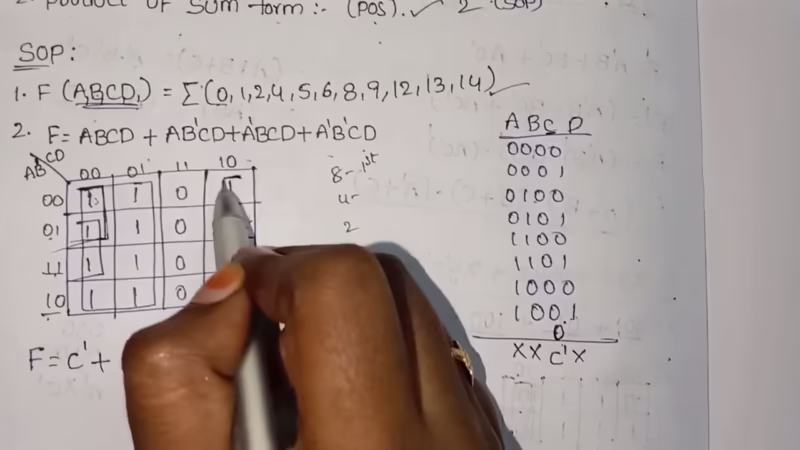 2. PRODUCT OF SUM form :- (POS). ✓ 2 (SOP)
SOP:
1. F (ABCD) = Σ (0,1,2,4,5,6,8,9,12,13,14)
2. F= ABCD + AB'CD+A'BCD+A'B'CD
AB CD 00 01 11 10
00 1 1 0 1
01 1 1 0
11 1 1 0
10 1 1 0
F= C' +
8- 1st
4-
2
A B C D
0000
0001
0100
0101
1100
1101
1000
1001
0
X X C' X